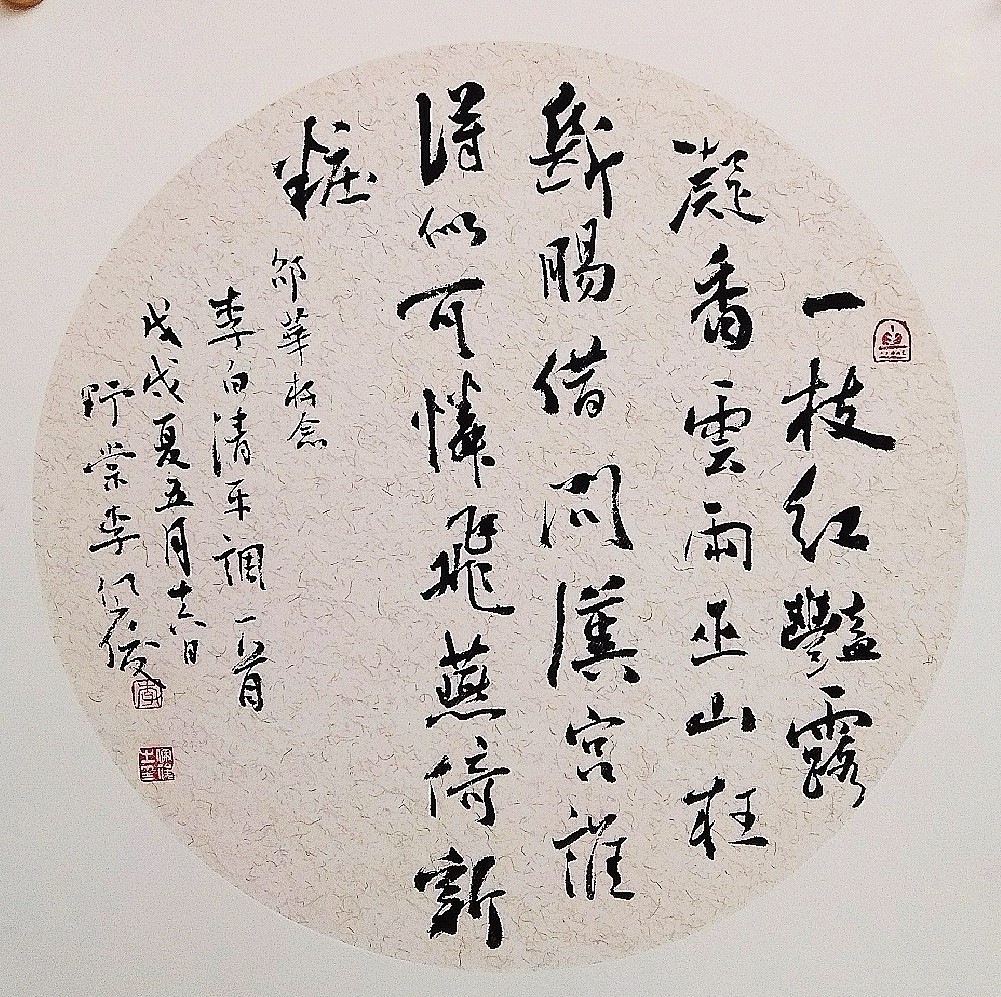 一枝紅豔露
凝香雲雨巫山枉
斷腸借問漢宮誰
得似可憐飛燕倚新
粧
邵華存念
李白清平調一首
戊戌夏五月十六日
野棠李俊